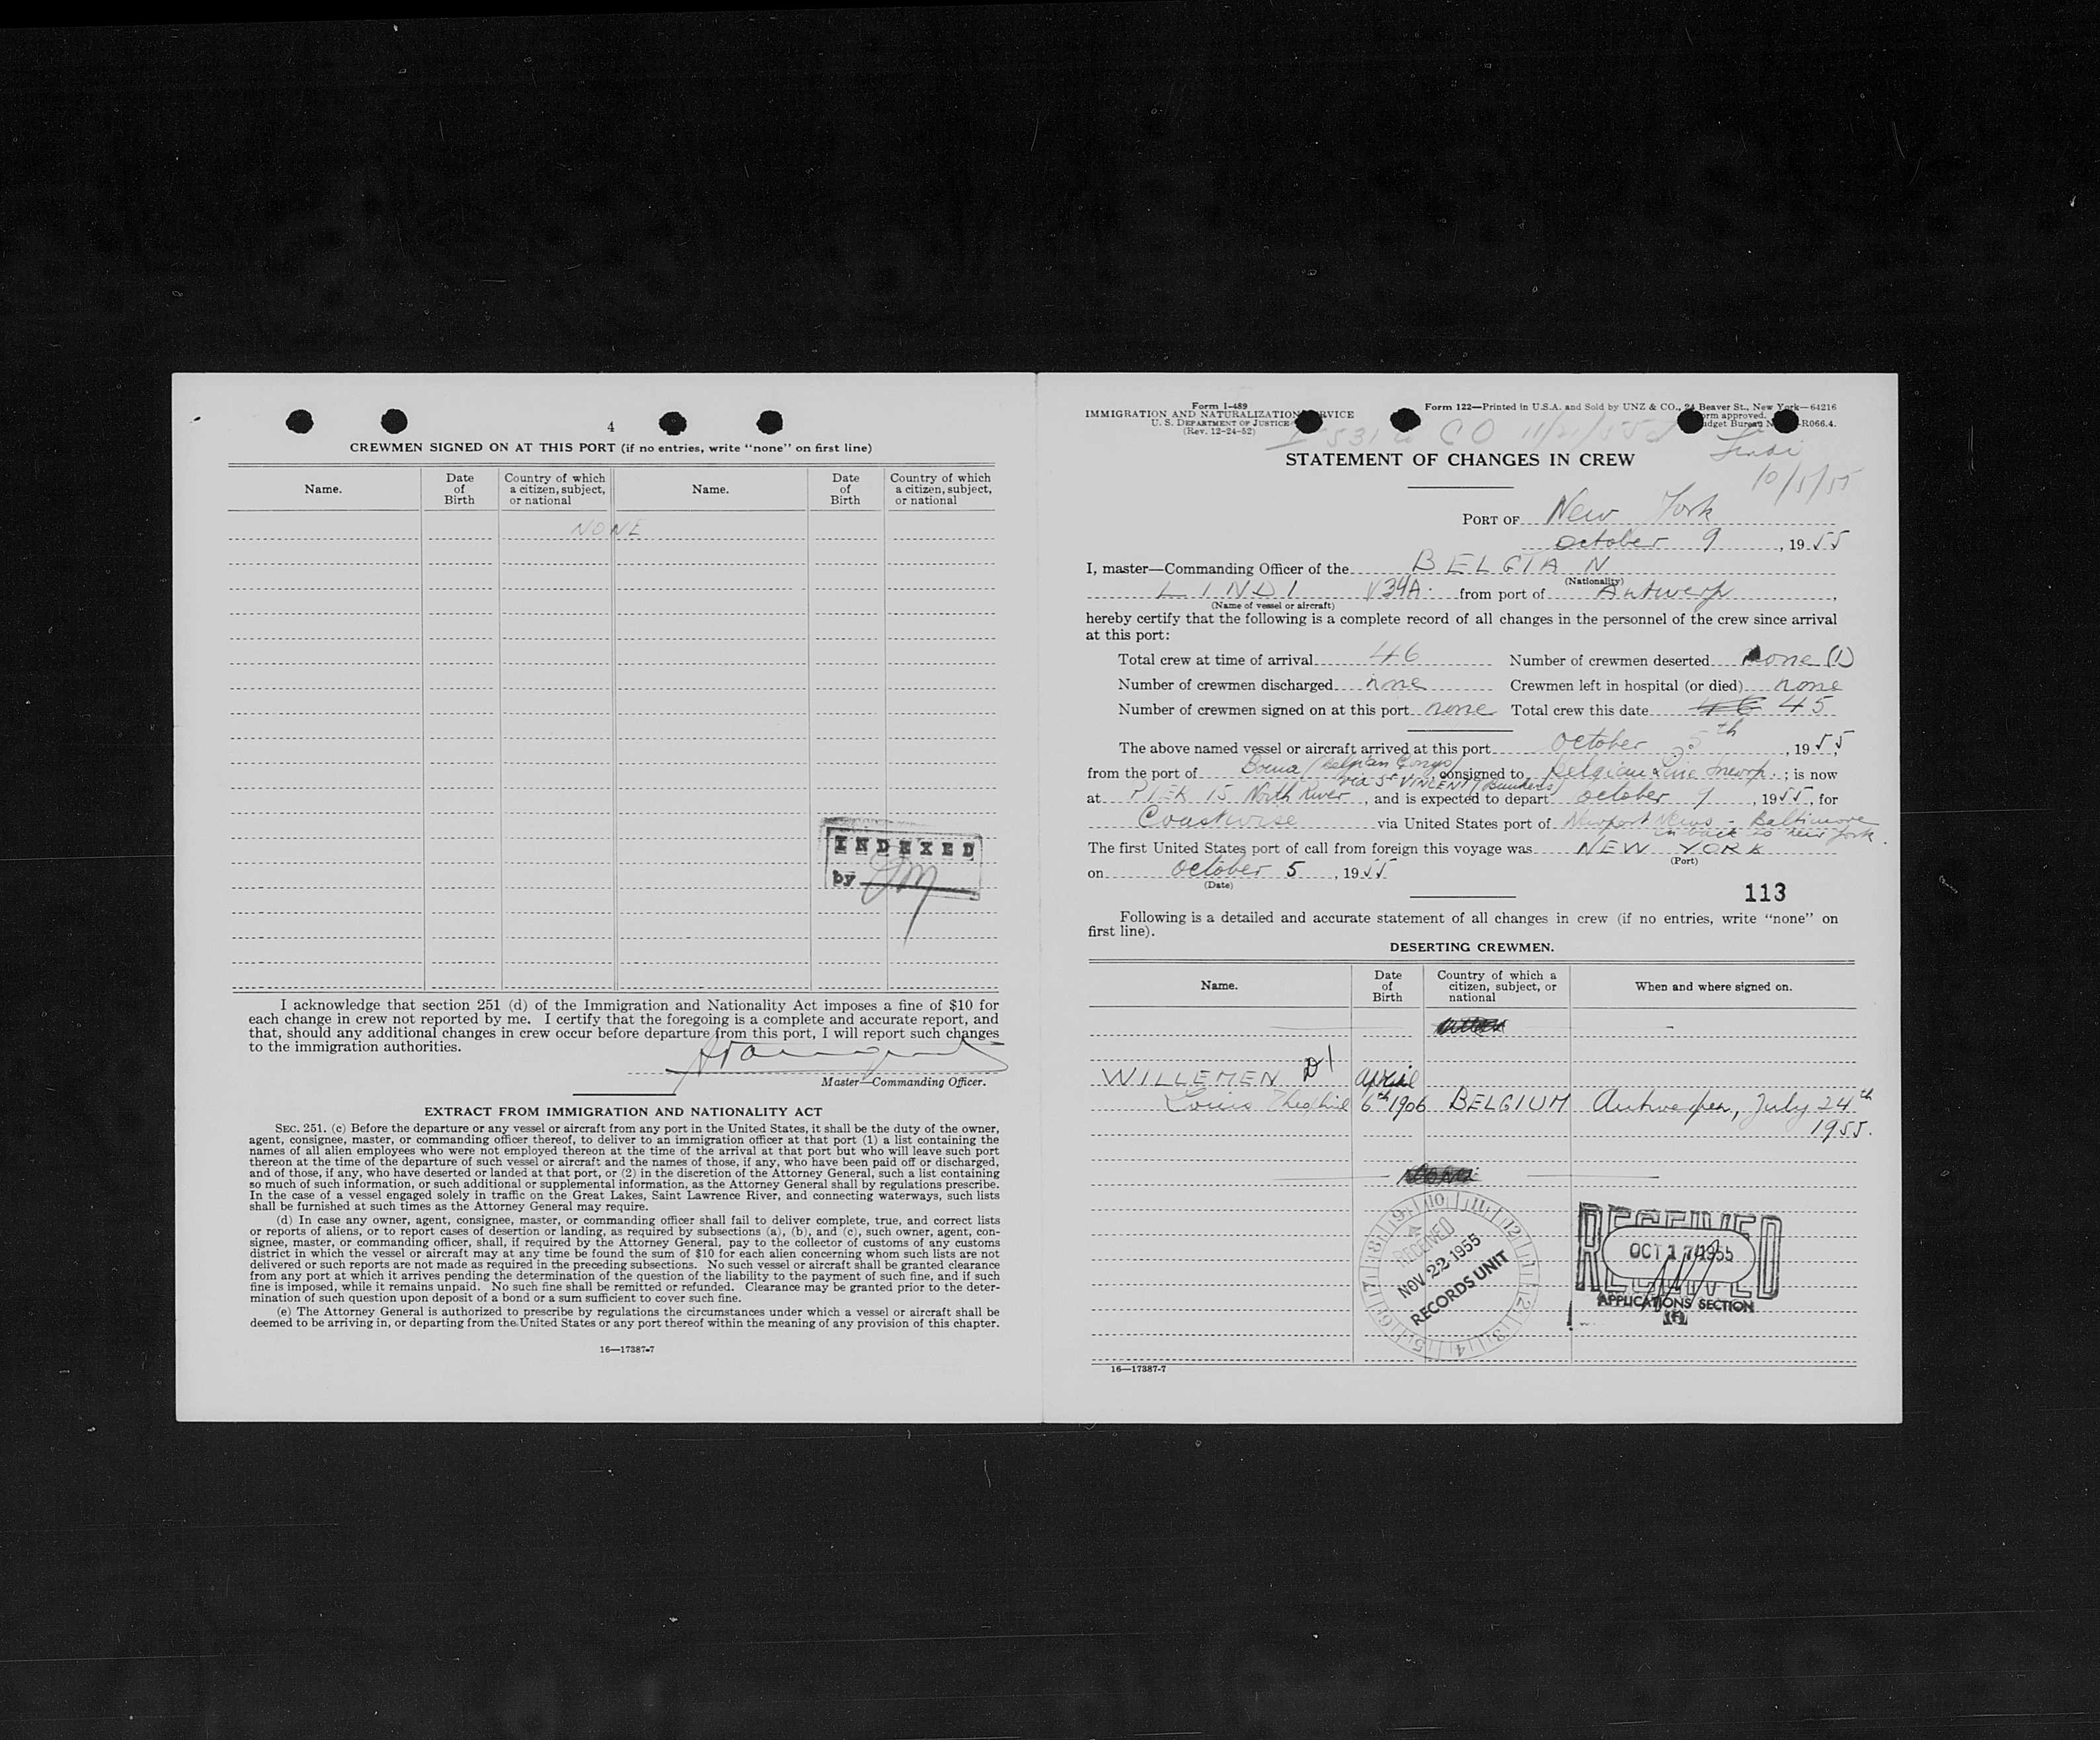 4
CREWMEN SIGNED ON AT THIS PORT (if no entries, write "none" on first line)
Name. Date of Birth Country of which a citizen, subject, or national Name. Date of Birth Country of which a citizen, subject, or national
NONE
INDEXED
by
I acknowledge that section 251 (d) of the Immigration and Nationality Act imposes a fine of $10 for
each change in crew not reported by me. I certify that the foregoing is a complete and accurate report, and
that, should any additional changes in crew occur before departure from this port, I will report such changes
to the immigration authorities.
Master—Commanding Officer.
EXTRACT FROM IMMIGRATION AND NATIONALITY ACT
SEC. 251. (c) Before the departure or any vessel or aircraft from any port in the United States, it shall be the duty of the owner,
agent, consignee, master, or commanding officer thereof, to deliver to an immigration officer at that port (1) a list containing the
names of all alien employees who were not employed thereon at the time of the arrival at that port but who will leave such port
thereon at the time of the departure of such vessel or aircraft and the names of those, if any, who have been paid off or discharged,
and of those, if any, who have deserted or landed at that port, or (2) in the discretion of the Attorney General, such a list containing
so much of such information, or such additional or supplemental information, as the Attorney General shall by regulations prescribe.
In the case of a vessel engaged solely in traffic on the Great Lakes, Saint Lawrence River, and connecting waterways, such lists
shall be furnished at such times as the Attorney General may require.
(d) In case any owner, agent, consignee, master, or commanding officer shall fail to deliver complete, true, and correct lists
or reports of aliens, or to report cases of desertion or landing, as required by subsections (a), (b), and (c), such owner, agent, con-
signee, master, or commanding officer, shall, if required by the Attorney General, pay to the collector of customs of any customs
district in which the vessel or aircraft may at any time be found the sum of $10 for each alien concerning whom such lists are not
delivered or such reports are not made as required in the preceding subsections. No such vessel or aircraft shall be granted clearance
from any port at which it arrives pending the determination of the question of the liability to the payment of such fine, and if such
fine is imposed, while it remains unpaid. No such fine shall be remitted or refunded. Clearance may be granted prior to the deter-
mination of such question upon deposit of a bond or a sum sufficient to cover such fine.
(e) The Attorney General is authorized to prescribe by regulations the circumstances under which a vessel or aircraft shall be
deemed to be arriving in, or departing from the United States or any port thereof within the meaning of any provision of this chapter.
16—17387-7
Form I-489
IMMIGRATION AND NATURALIZATION SERVICE
U. S. DEPARTMENT OF JUSTICE
(Rev. 12-24-52)
Form 122—Printed in U.S.A. and Sold by UNZ & CO., 24 Beaver St., New York—64216
Form approved.
Budget Bureau No. -R066.4.
Lindi
10/5/55
STATEMENT OF CHANGES IN CREW
PORT OF New York
October 9, 1955
I, master—Commanding Officer of the BELGIAN
(Nationality)
LINDI V34A. from port of Antwerp,
(Name of vessel or aircraft)
hereby certify that the following is a complete record of all changes in the personnel of the crew since arrival
at this port:
Total crew at time of arrival 46 Number of crewmen deserted none (1)
Number of crewmen discharged none Crewmen left in hospital (or died) none
Number of crewmen signed on at this port none Total crew this date 46 45
The above named vessel or aircraft arrived at this port October 5th, 1955,
from the port of Boma (Belgian Congo) via St VINCENT (Bunkers) consigned to Belgian Line Incorp.; is now
at PIER 15 North River, and is expected to depart October 9, 1955, for
Coastwise via United States port of Newport News - Baltimore
back to New York.
The first United States port of call from foreign this voyage was NEW YORK
(Port)
on October 5, 1955
(Date)
113
Following is a detailed and accurate statement of all changes in crew (if no entries, write "none" on
first line).
DESERTING CREWMEN.
Name. Date of Birth Country of which a citizen, subject, or national When and where signed on.
WILLEMEN D1 April
Louis 6th 1906 BELGIUM Antwerpen, July 24th
1955.
RECEIVED
NOV 22 1955
RECORDS UNIT
RECEIVED
OCT 17 1955
APPLICATIONS SECTION
16—17387-7